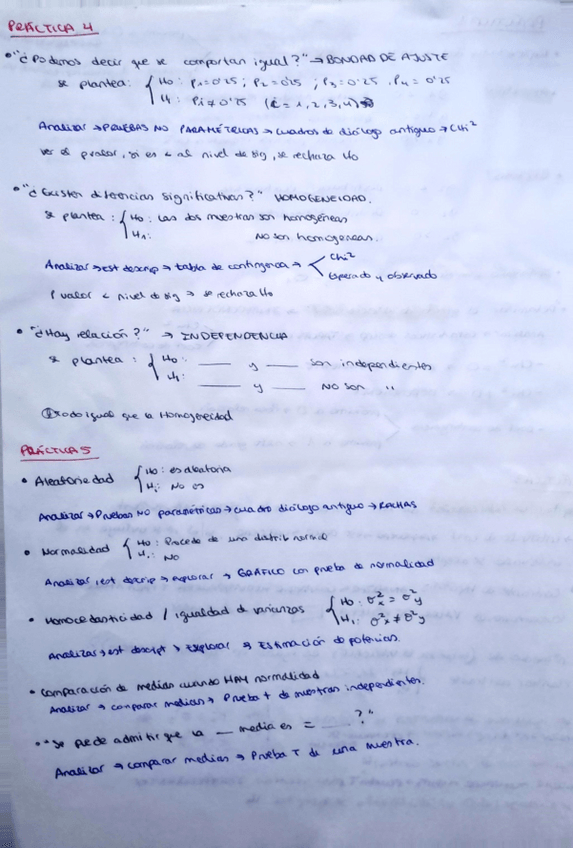 PRÁCTICA 4
• "¿Podemos decir que se comportan igual?" → BONDAD DE AJUSTE
se plantea: { H0: P1=0'25; P2=0'25; P3=0'25. P4=0'25
H1: Pi≠0'25 (i=1,2,3,4)
Analizar → PRUEBAS NO PARAMÉTRICAS → cuadros de diálogo antiguo → Chi²
ver el pvalor, si es < al nivel de sig, se rechaza H0
• "¿Existen diferencias significativas?" HOMOGENEIDAD.
se plantea: { H0: Las dos muestras son homogéneas
H1: NO son homogeneas.
Analizar → est descrip → tabla de contingencia → < Chi²
Esperado y observado
P valor < nivel de sig → se rechaza H0
• "¿Hay relación?" → INDEPENDENCIA
se plantea: { H0: ___ y ___ son independientes
H1: ___ y ___ NO son "
todo igual que la Homogeneidad
PRÁCTICA 5
• Aleatoriedad { H0: es aleatoria
H1: No es
Analizar → Pruebas NO paramétricas → cuadro diálogo antiguo → RACHAS
• Normalidad { H0: Procede de una distrib normal
H1: NO
Analizar, est descrip → explorar → GRÁFICO con prueba de normalidad
• Homocedasticidad / igualdad de varianzas { H0: σ²x = σ²y
H1: σ²x ≠ σ²y
Analizar → est descript → Explorar → Estimación de potencias.
• Comparación de medias cuando HAY normalidad
Analizar → comparar medias → Prueba t de muestras independientes.
• "Se puede admitir que la __ media es = ___ ?"
Analizar → comparar medias → Prueba T de una muestra.